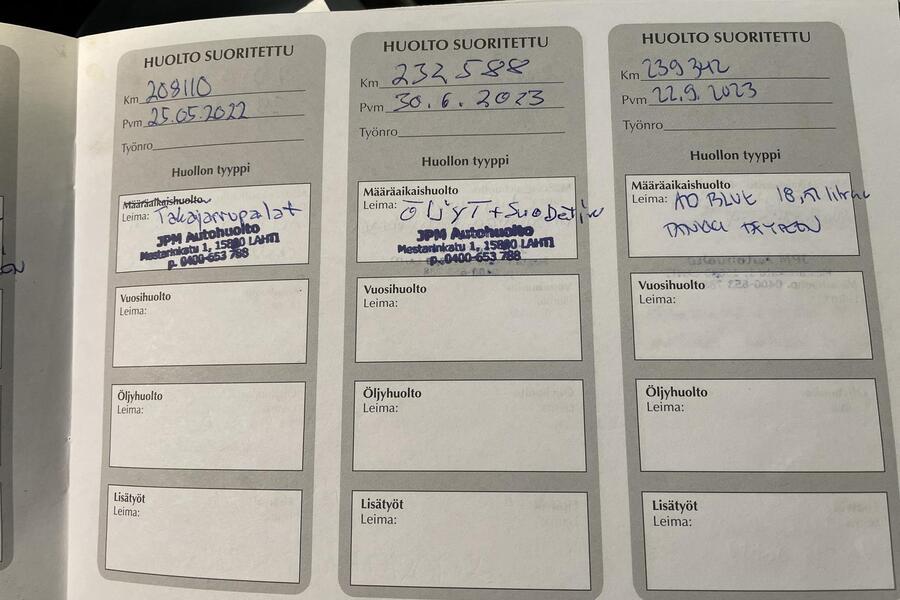 HUOLTO SUORITETTU
Km 208110
Pvm 25.05.2022
Työnro
Huollon tyyppi
Määräaikaishuolto
Leima: Takajarrupalat
JPM Autohuolto
Mestarinkatu 1, 15800 LAHTI
p. 0400-653 788
Vuosihuolto
Leima:
Öljyhuolto
Leima:
Lisätyöt
Leima:
HUOLTO SUORITETTU
Km 232 588
Pvm 30.6.2023
Työnro
Huollon tyyppi
Määräaikaishuolto
Leima: ÖLJYT + SuoDatin
JPM Autohuolto
Mestarinkatu 1, 15800 LAHTI
p. 0400-653 788
Vuosihuolto
Leima:
Öljyhuolto
Leima:
Lisätyöt
Leima:
HUOLTO SUORITETTU
Km 239 342
Pvm 22.9.2023
Työnro
Huollon tyyppi
Määräaikaishuolto
Leima: AD BLUE litraa
TANKKI TÄYTEEN
Vuosihuolto
Leima:
Öljyhuolto
Leima:
Lisätyöt
Leima: